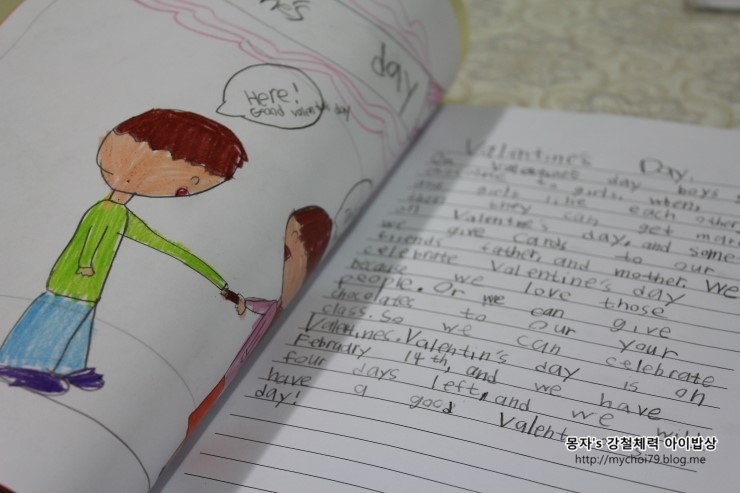 ne's
day
Here!
Good valentine day
Valentine's Day.
On Valentine's day boys
chocolate to girls, when
and girls like each other
then they can get
on Valentine's day, and some-
we give cards to our
friends father, and mother. We
celebrate Valentine's day
because we love those
people. Or we can give
chocolates to our your
class. So we can celebrate
Valentines. Valentin's day is on
February 14th, and we have
four days left, and we will
have a good Valent
day!
몽자's 강철체력 아이밥상
http://mychoi79.blog.me